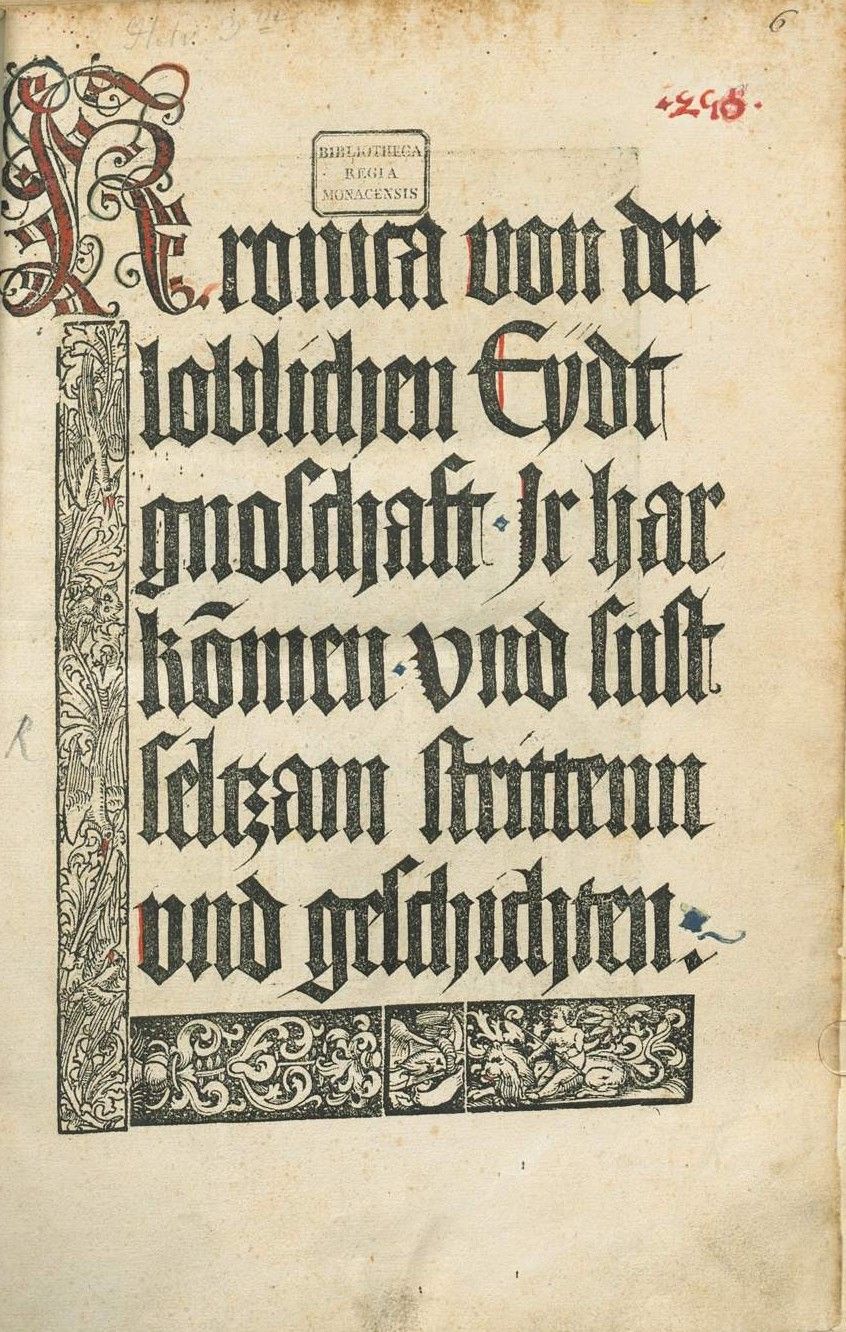 6
BIBLIOTHECA
REGIA
MONACENSIS
Kronica von der
loblichen Eydt
gnoſchaft Jr har
kōmen vnd ſuſt
ſeltzam ſtrittenn
vnd geſchichten.
K